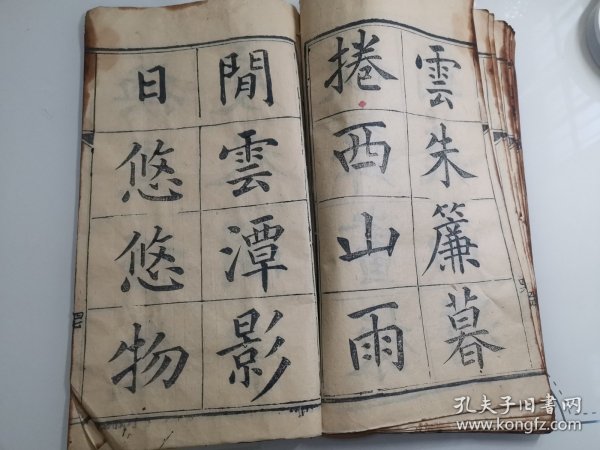 雲朱簾暮
捲西山雨
閒雲潭影
日悠悠物
孔夫子旧書网
www.kongfz.com